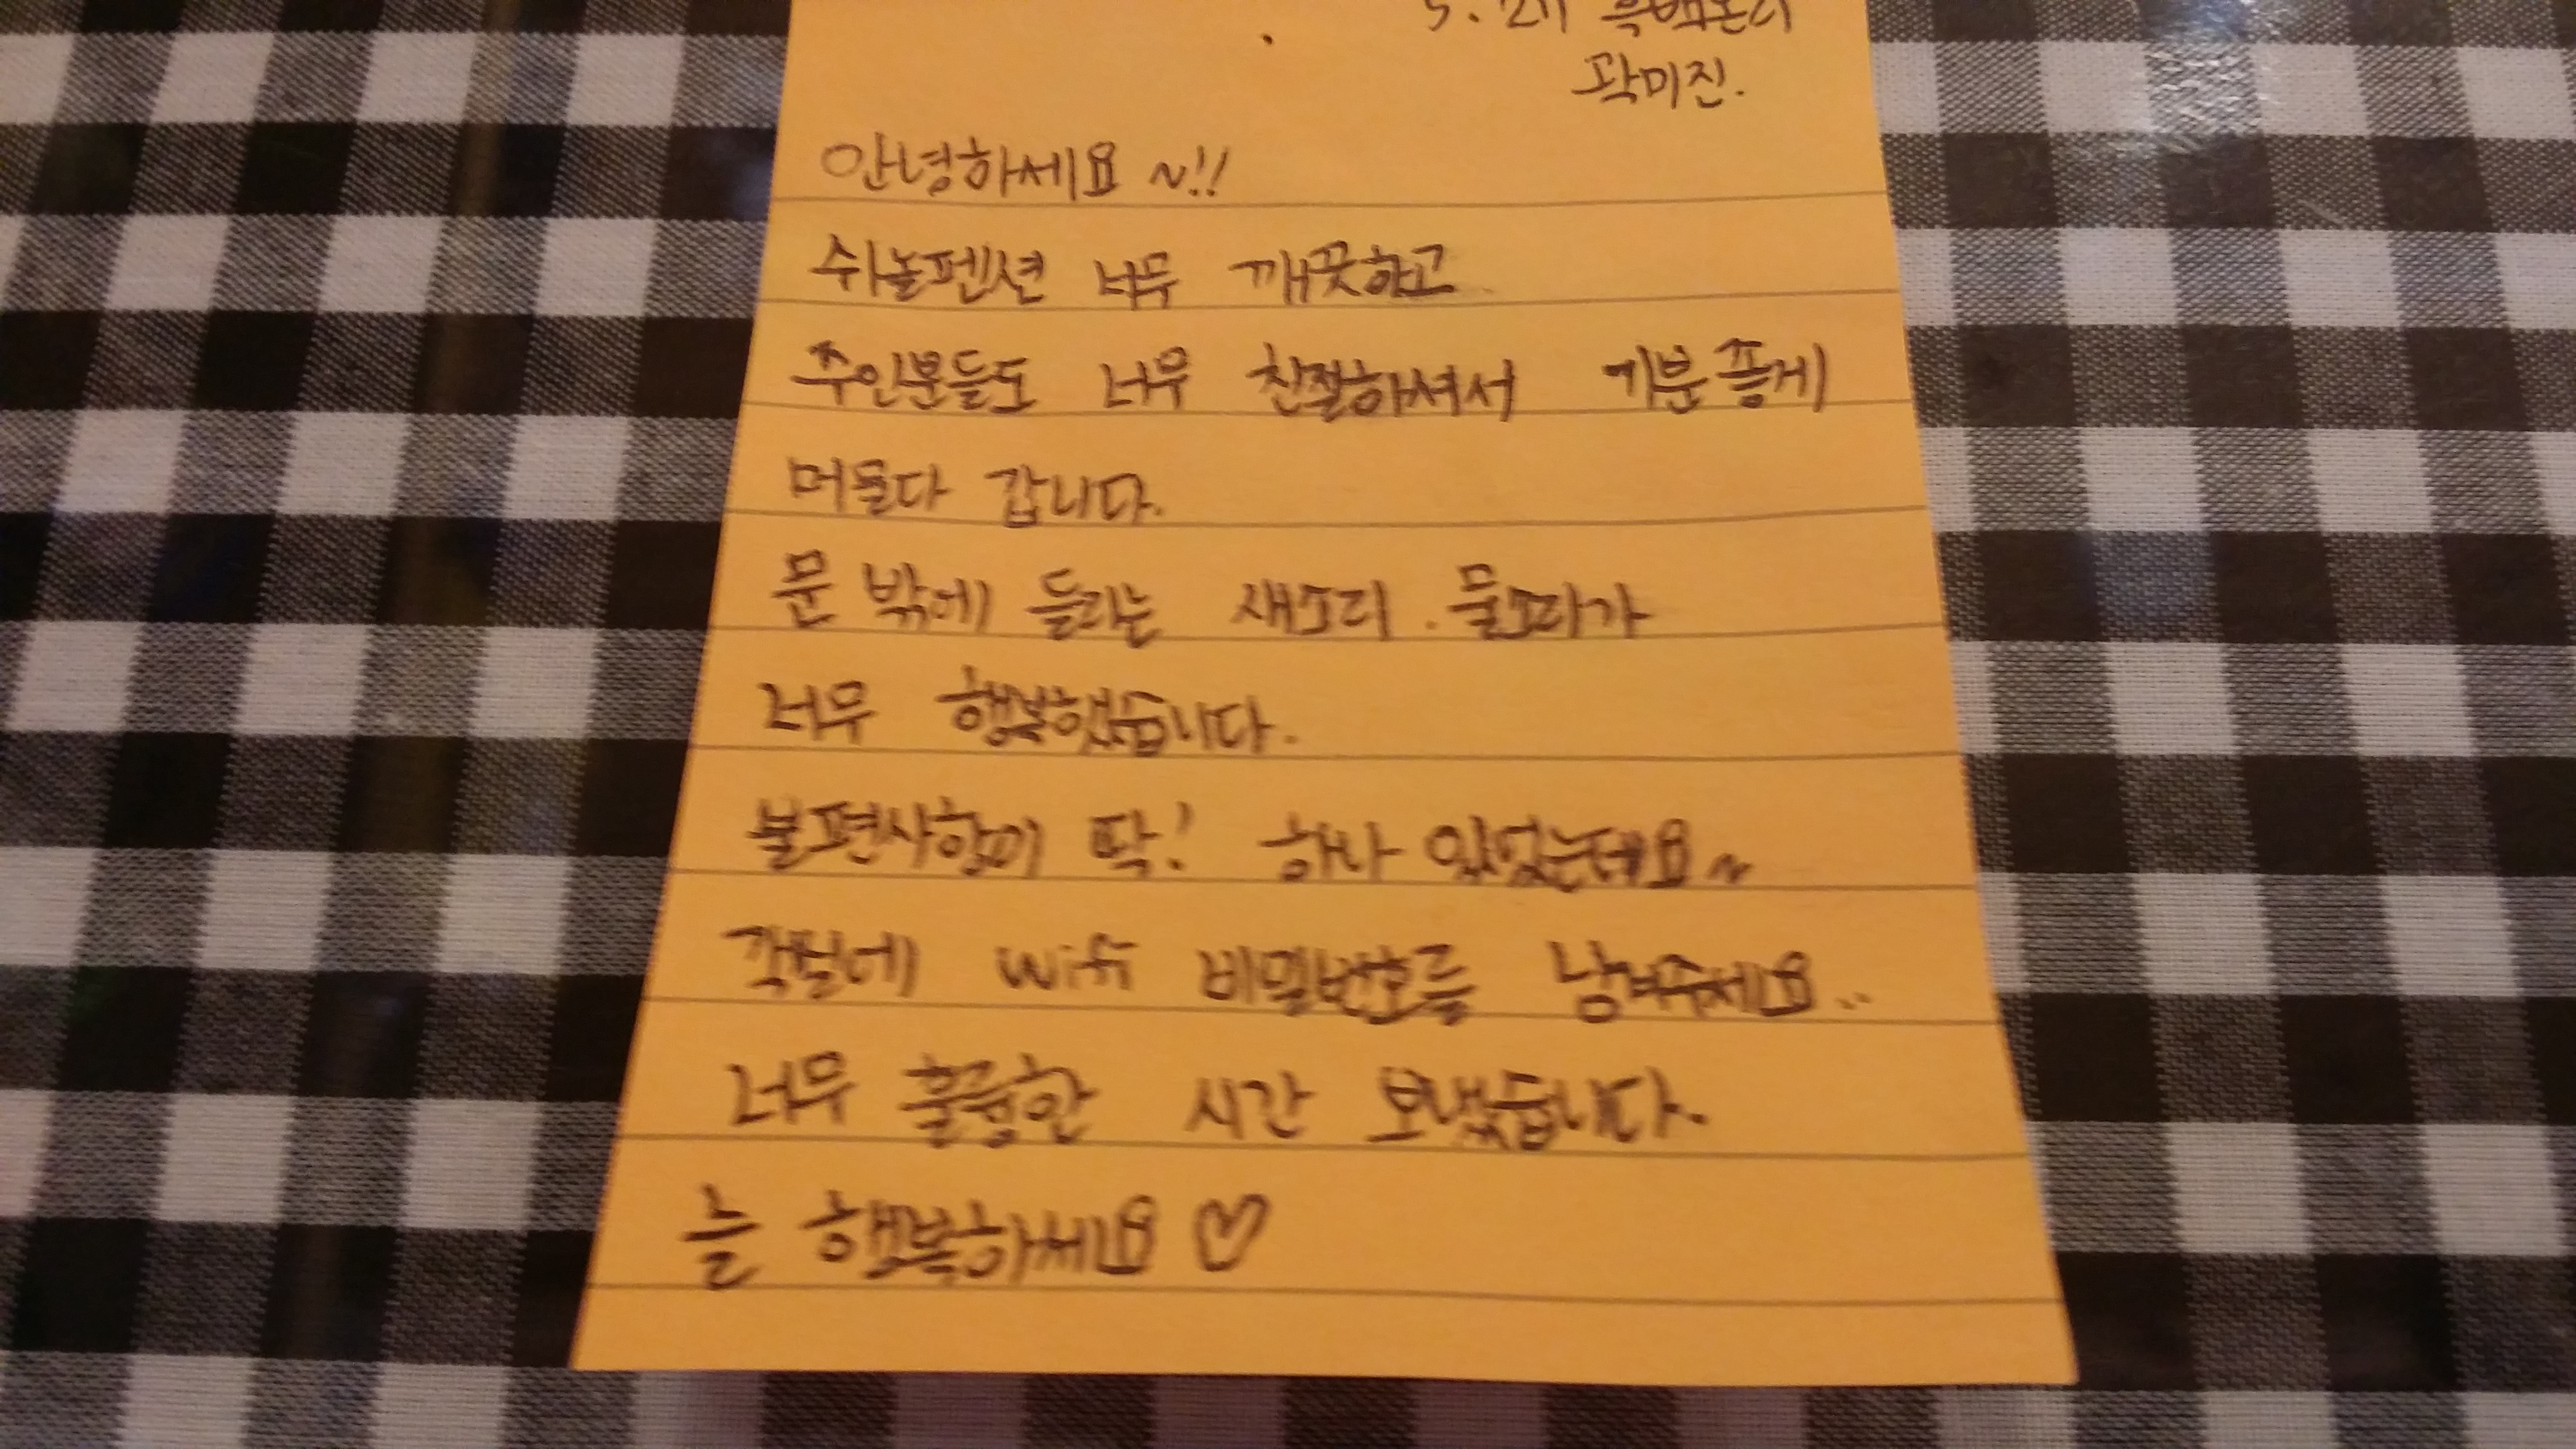 곽미진.
안녕하세요 ~!!
쉬놀펜션 너무 깨끗하고
주인분들도 너무 친절하셔서 기분좋게
머물다 갑니다.
문 밖에 들리는 새소리. 물소리가
너무 행복했습니다.
불편사항이 딱! 하나 있었는데요~
객실에 wifi 비밀번호를 남겨주세요..
너무 훌륭한 시간 보냈습니다.
늘 행복하세요 ♡